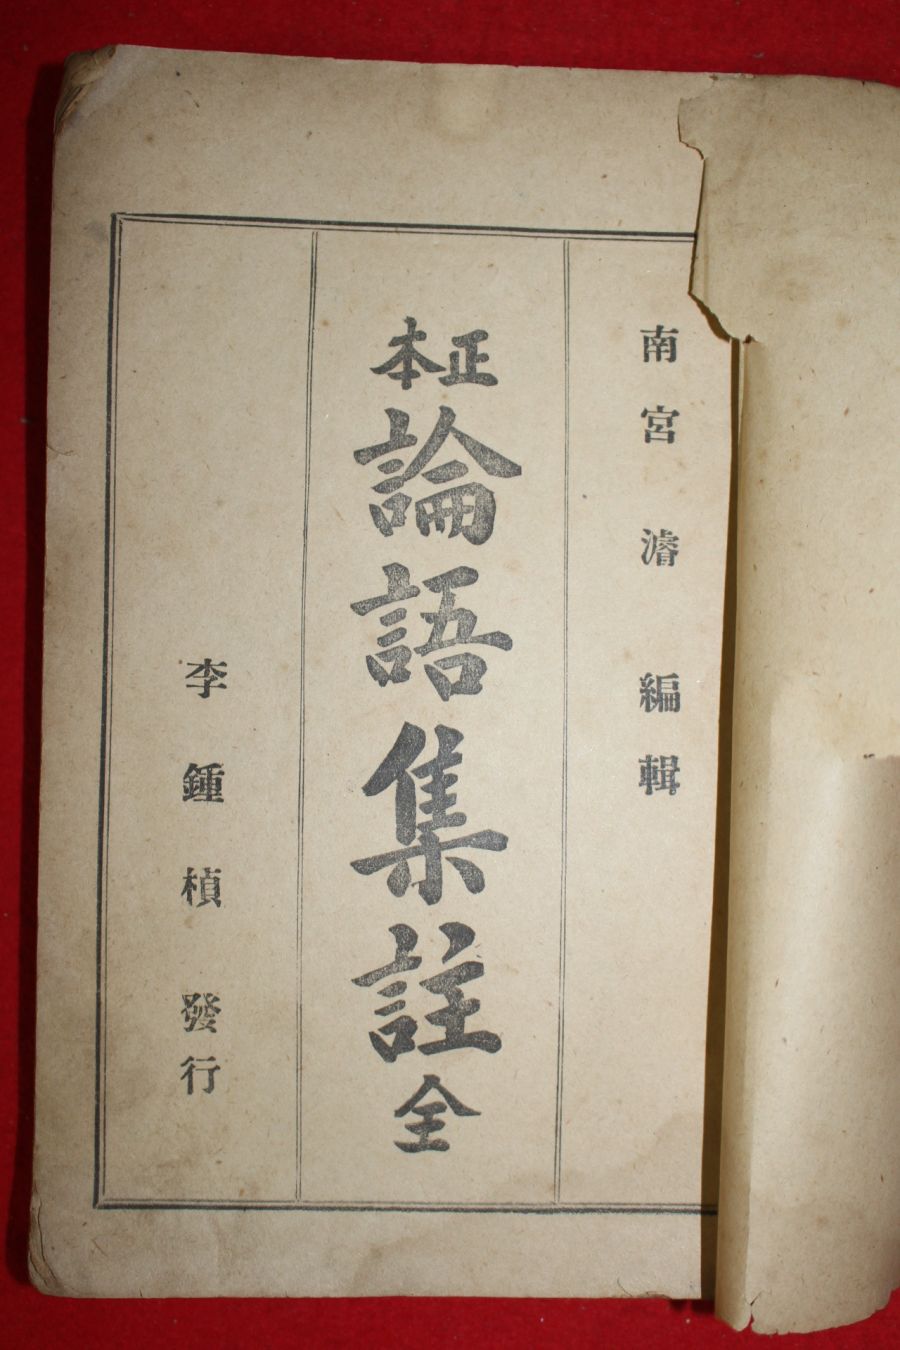 南宮濬編輯
正本
論語集註全
李鍾楨發行